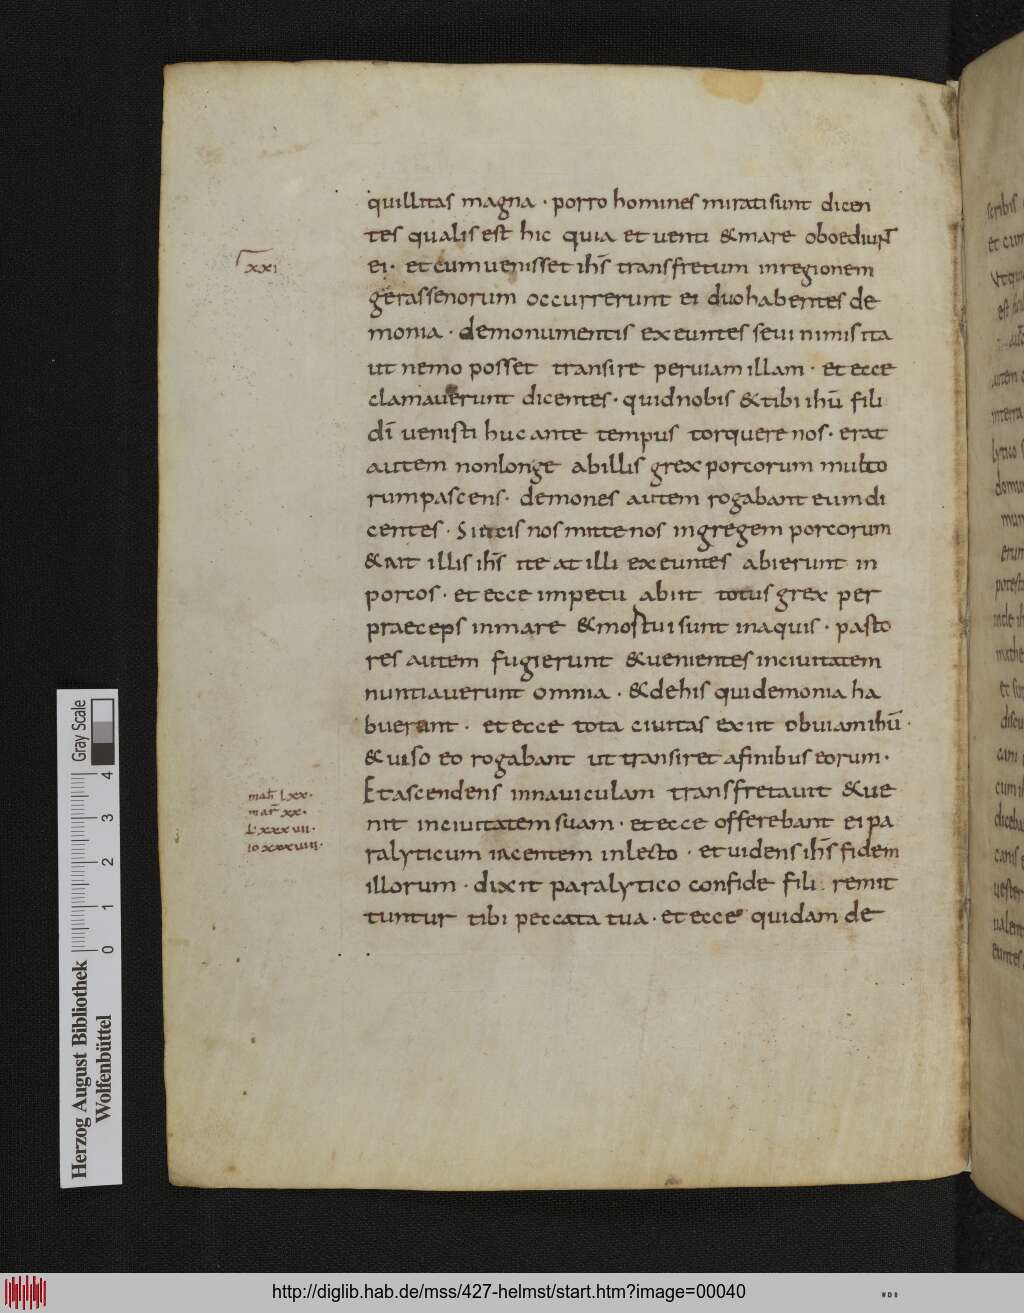 quillitas magna · porro homines mirati sunt dicen
tes qualis est hic quia et venti & mare oboediunt
xxi
ei · et cum venisset ihs̄ transfretum in regionem
gerassenorum occurrerunt ei duo habentes de
monia · de monumentis exeuntes sevi nimis ita
ut nemo posset transire per viam illam · et ecce
clamaverunt dicentes · quid nobis & tibi ihū fili
dī venisti huc ante tempus torquere nos · erat
autem non longe ab illis grex porcorum multo
rum pascens · demones autem rogabant eum di
centes · Si eicis nos mitte nos in gregem porcorum
& ait illis ihs̄ ite at illi exeuntes abierunt in
porcos · et ecce impetu abiit totus grex per
praeceps in mare & mortui sunt in aquis · pasto
res autem fugierunt & venientes in civitatem
nuntiaverunt omnia · & de his qui demonia ha
buerant · et ecce tota civitas exiit obviam ihū ·
& viso eo rogabant ut transiret a finibus eorum ·
Et ascendens in naviculam transfretavit & ve
nit in civitatem suam · et ecce offerebant ei pa
ralyticum iacentem in lecto · et videns ihs̄ fidem
illorum · dixit paralytico confide fili remit
tuntur tibi peccata tua · et ecce quidam de
math lxx ·
mar xx ·
L xxxvii ·
io xxxviii ·
Gray Scale
0 1 2 3 4
Herzog August Bibliothek
Wolfenbüttel
scribis
et cum
http://diglib.hab.de/mss/427-helmst/start.htm?image=00040